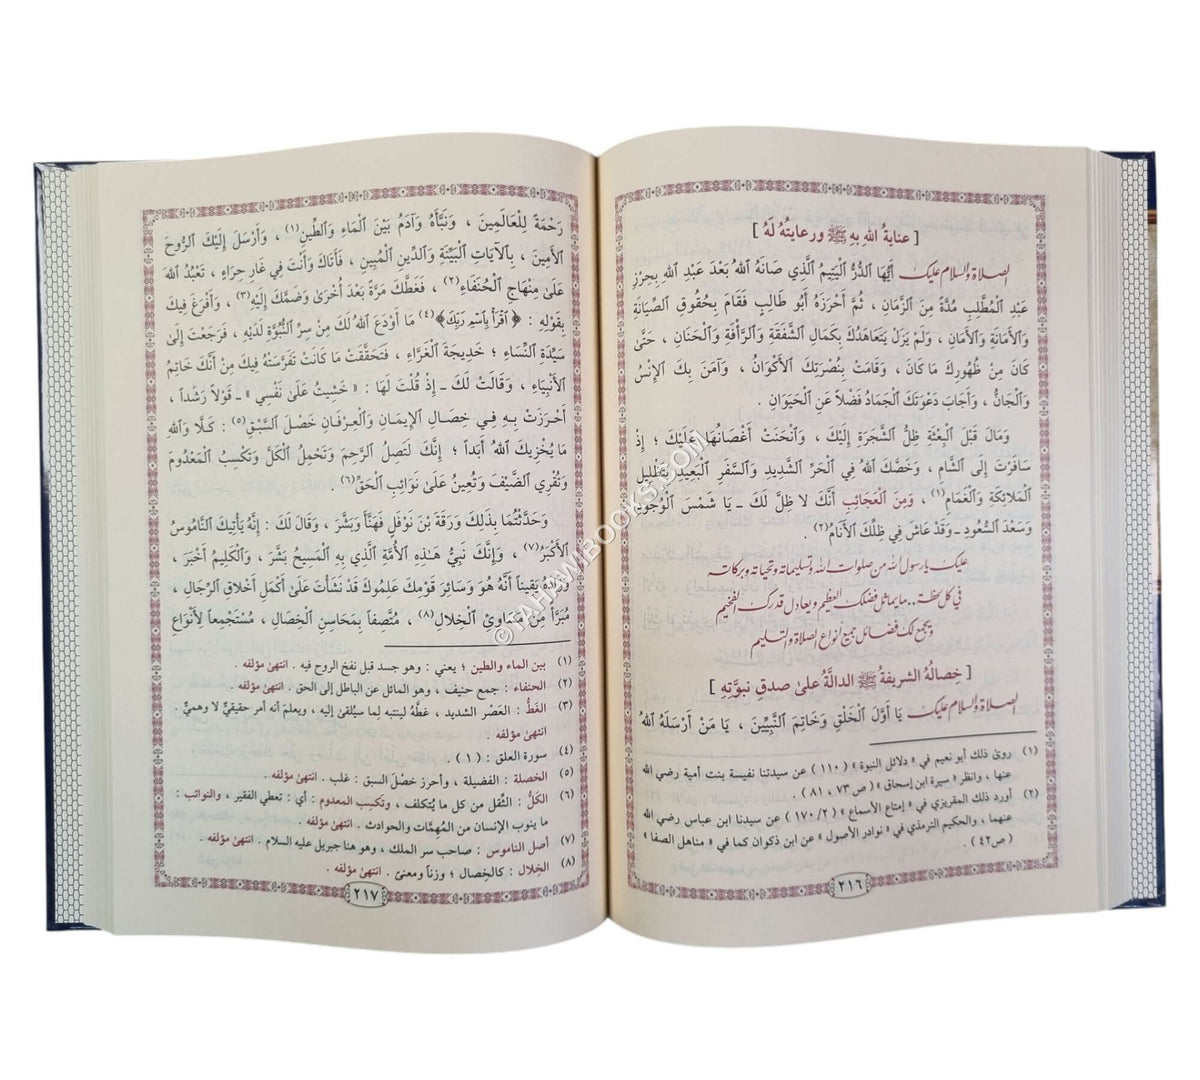 [ عنايةُ اللهِ بِهِ ﷺ ورعايتُهُ لَهُ ]
الصلاة والسلام عليك أَيُّهَا ٱلدُّرُّ ٱلْيَتِيمُ ٱلَّذِي صَانَهُ ٱللهُ بَعْدَ عَبْدِ ٱللهِ بِحِرْزِ
عَبْدِ ٱلْمُطَّلِبِ مُدَّةً مِنَ ٱلزَّمَانِ ، ثُمَّ أَحْرَزَهُ أَبُو طَالِبٍ فَقَامَ بِحُقُوقِ ٱلصِّيَانَةِ
وَٱلْأَمَانَةِ وَٱلْأَمَانِ ، وَلَمْ يَزَلْ يَتَعَاهَدُكَ بِكَمَالِ ٱلشَّفَقَةِ وَٱلرَّأْفَةِ وَٱلْحَنَانِ ، حَتَّىٰ
كَانَ مِنْ ظُهُورِكَ مَا كَانَ ، وَقَامَتْ بِنُصْرَتِكَ ٱلْأَكْوَانُ ، وَآمَنَ بِكَ ٱلْإِنْسُ
وَٱلْجَانُّ ، وَأَجَابَ دَعْوَتَكَ ٱلْجَمَادُ فَضْلاً عَنِ ٱلْحَيَوَانِ .
وَمَالَ قَبْلَ ٱلْبِعْثَةِ ظِلُّ ٱلشَّجَرَةِ إِلَيْكَ ، وَٱنْحَنَتْ أَغْصَانُهَا عَلَيْكَ ؛ إِذْ
سَافَرْتَ إِلَى ٱلشَّامِ ، وَخَصَّكَ ٱللهُ فِي ٱلْحَرِّ ٱلشَّدِيدِ وَٱلسَّفَرِ ٱلْبَعِيدِ بِتَظْلِيلِ
ٱلْمَلَائِكَةِ وَٱلْغَمَامِ (١) ، وَمِنَ ٱلْعَجَائِبِ أَنَّكَ لَا ظِلَّ لَكَ ـ يَا شَمْسَ ٱلْوُجُودِ
وَسَعْدَ ٱلسُّعُودِ ـ وَقَدْ عَاشَ فِي ظِلِّكَ ٱلْأَنَامُ (٢) .
عليك يا رسول الله من صلوات الله وتسليماته وتحياته وبركاته
في كل لحظة .. ما يماثل فضلك العظيم ويعادل قدرك الفخيم
ويجمع لك فضائل جميع أنواع الصلاة والتسليم
[ خصالُهُ الشريفةُ ﷺ الدالَّةُ علىٰ صدقِ نبوَّتِهِ ]
الصلاة والسلام عليك يَا أَوَّلَ ٱلْخَلْقِ وَخَاتِمَ ٱلنَّبِيِّينَ ، يَا مَنْ أَرْسَلَهُ ٱللهُ
(١) روىٰ ذلك أبو نعيم في « دلائل النبوة » ( ١١٠ ) عن سيدتنا نفيسة بنت أمية رضي الله
عنها ، وانظر « سيرة ابن إسحاق » ( ص ٧٣ ، ٨١ ) .
(٢) أورد ذلك المقريزي في « إمتاع الأسماع » ( ٢/ ١٧٠ ) عن سيدنا ابن عباس رضي الله
عنهما ، والحكيم الترمذي في « نوادر الأصول » عن ابن ذكوان كما في « مناهل الصفا »
( ص ٤٢ ) .
٢١٦
رَحْمَةً لِلْعَالَمِينَ ، وَنَبَّأَهُ وَآدَمُ بَيْنَ ٱلْمَاءِ وَٱلطِّينِ (١) ، وَأَرْسَلَ إِلَيْكَ ٱلرُّوحَ
ٱلْأَمِينَ ، بِٱلْآيَاتِ ٱلْبَيِّنَةِ وَٱلدِّينِ ٱلْمُبِينِ ، فَأَتَاكَ وَأَنْتَ فِي غَارِ حِرَاءٍ ، تَعْبُدُ ٱللهَ
عَلَىٰ مِنْهَاجِ ٱلْحُنَفَاءِ (٢) ، فَغَطَّكَ مَرَّةً بَعْدَ أُخْرَىٰ وَضَمَّكَ إِلَيْهِ (٣) ، وَأَفْرَغَ فِيكَ
بِقَوْلِهِ : ﴿ ٱقْرَأْ بِٱسْمِ رَبِّكَ ﴾ (٤) مَا أَوْدَعَ ٱللهُ لَكَ مِنْ سِرِّ ٱلنُّبُوَّةِ لَدَيْهِ ، فَرَجَعْتَ إِلَىٰ
سَيِّدَةِ ٱلنِّسَاءِ ؛ خَدِيجَةَ ٱلْغَرَّاءِ ، فَتَحَقَّقَتْ مَا كَانَتْ تَفَرَّسَتْهُ فِيكَ مِنْ أَنَّكَ خَاتِمُ
ٱلْأَنْبِيَاءِ ، وَقَالَتْ لَكَ ـ إِذْ قُلْتَ لَهَا : « خَشِيتُ عَلَىٰ نَفْسِي » ـ قَوْلاً رَشَداً ،
أَحْرَزَتْ بِهِ فِي خِصَالِ ٱلْإِيمَانِ وَٱلْعِرْفَانِ خَصْلَ ٱلسَّبْقِ (٥) : كَلَّا وَٱللهِ
مَا يُخْزِيكَ ٱللهُ أَبَداً ؛ إِنَّكَ لَتَصِلُ ٱلرَّحِمَ وَتَحْمِلُ ٱلْكَلَّ وَتَكْسِبُ ٱلْمَعْدُومَ
وَتُقْرِي ٱلضَّيْفَ وَتُعِينُ عَلَىٰ نَوَائِبِ ٱلْحَقِّ (٦) .
وَحَدَّثْتُمَا بِذَلِكَ وَرَقَةَ بْنَ نَوْفَلٍ فَهَنَّأَ وَبَشَّرَ ، وَقَالَ لَكَ : إِنَّهُ يَأْتِيكَ ٱلنَّامُوسُ
ٱلْأَكْبَرُ (٧) ، وَإِنَّكَ نَبِيُّ هَـٰذِهِ ٱلْأُمَّةِ ٱلَّذِي بِهِ ٱلْمَسِيحُ بَشَّرَ ، وَٱلْكَلِيمُ أَخْبَرَ ،
وَزَادَهُ يَقِيناً أَنَّهُ هُوَ وَسَائِرَ قَوْمِكَ عَلِمُوكَ قَدْ نَشَأْتَ عَلَىٰ أَكْمَلِ أَخْلَاقِ ٱلرِّجَالِ ،
مُبَرَّأً مِنْ مَسَاوِئِ ٱلْخِلَالِ (٨) ، مُتَّصِفاً بِمَحَاسِنِ ٱلْخِصَالِ ، مُسْتَجْمِعاً لِأَنْوَاعِ
(١) بين الماء والطين ؛ يعني : وهو جسد قبل نفخ الروح فيه . انتهىٰ مؤلفه .
(٢) الحنفاء : جمع حنيف ، وهو المائل عن الباطل إلى الحق . انتهىٰ مؤلفه .
(٣) الغَطُّ : العَصْر الشديد ، غطَّهُ لينتبه لِما سيُلقىٰ إليه ، ويعلمَ أنه أمر حقيقيٌّ لا وهميٌّ .
انتهىٰ مؤلفه .
(٤) سورة العلق : ( ١ ) .
(٥) الخصلة : الفضيلة ، وأحرز خصْلَ السبق : غلب . انتهىٰ مؤلفه .
(٦) الكَلُّ : الثِّقل من كل ما يُتكلف ، وتكسِب المعدوم : أي : تعطي الفقير ، والنوائب :
ما ينوب الإنسان من المُهِمَّات والحوادث . انتهىٰ مؤلفه .
(٧) أصل الناموس : صاحب سر الملك ، وهو هنا جبريل عليه السلام . انتهىٰ مؤلفه .
(٨) الخِلال : كالخِصال ؛ وزناً ومعنىً . انتهىٰ مؤلفه .
٢١٧
© TAHAWIBOOKS.COM